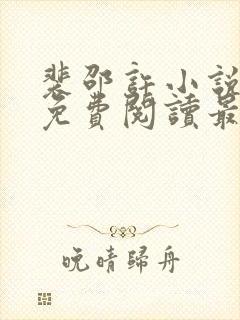 裴邵許小說
免費閱讀最
晚晴歸舟